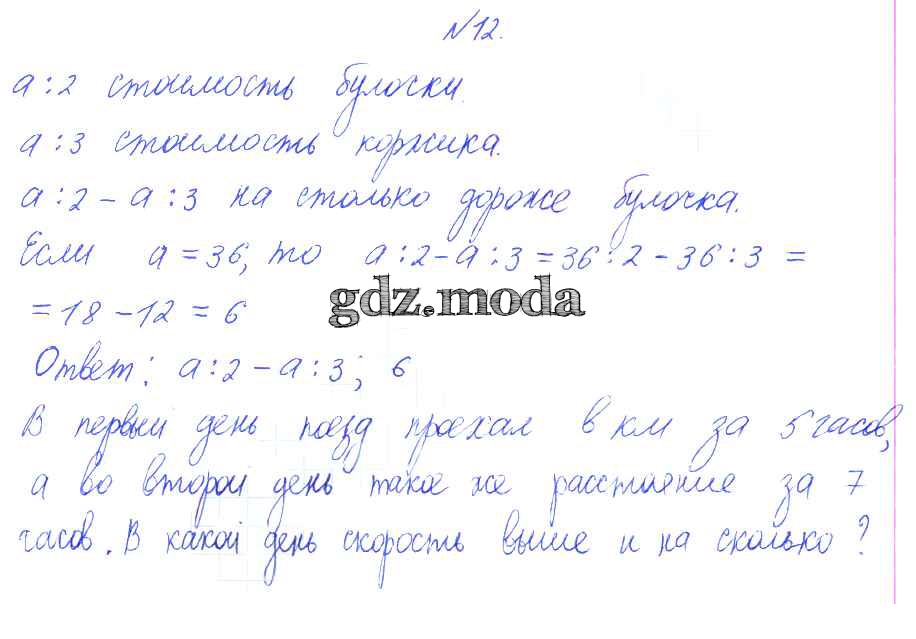 №12.
a:2 стоимость булочки.
a:3 стоимость коржика.
a:2-a:3 на столько дороже булочка.
Если a=36, то a:2-a:3=36:2-36:3=
=18-12=6
gdz.moda
Ответ: a:2-a:3; 6
В первый день поезд проехал в км за 5 часов,
а во второй день такое же расстояние за 7
часов. В какой день скорость выше и на сколько?